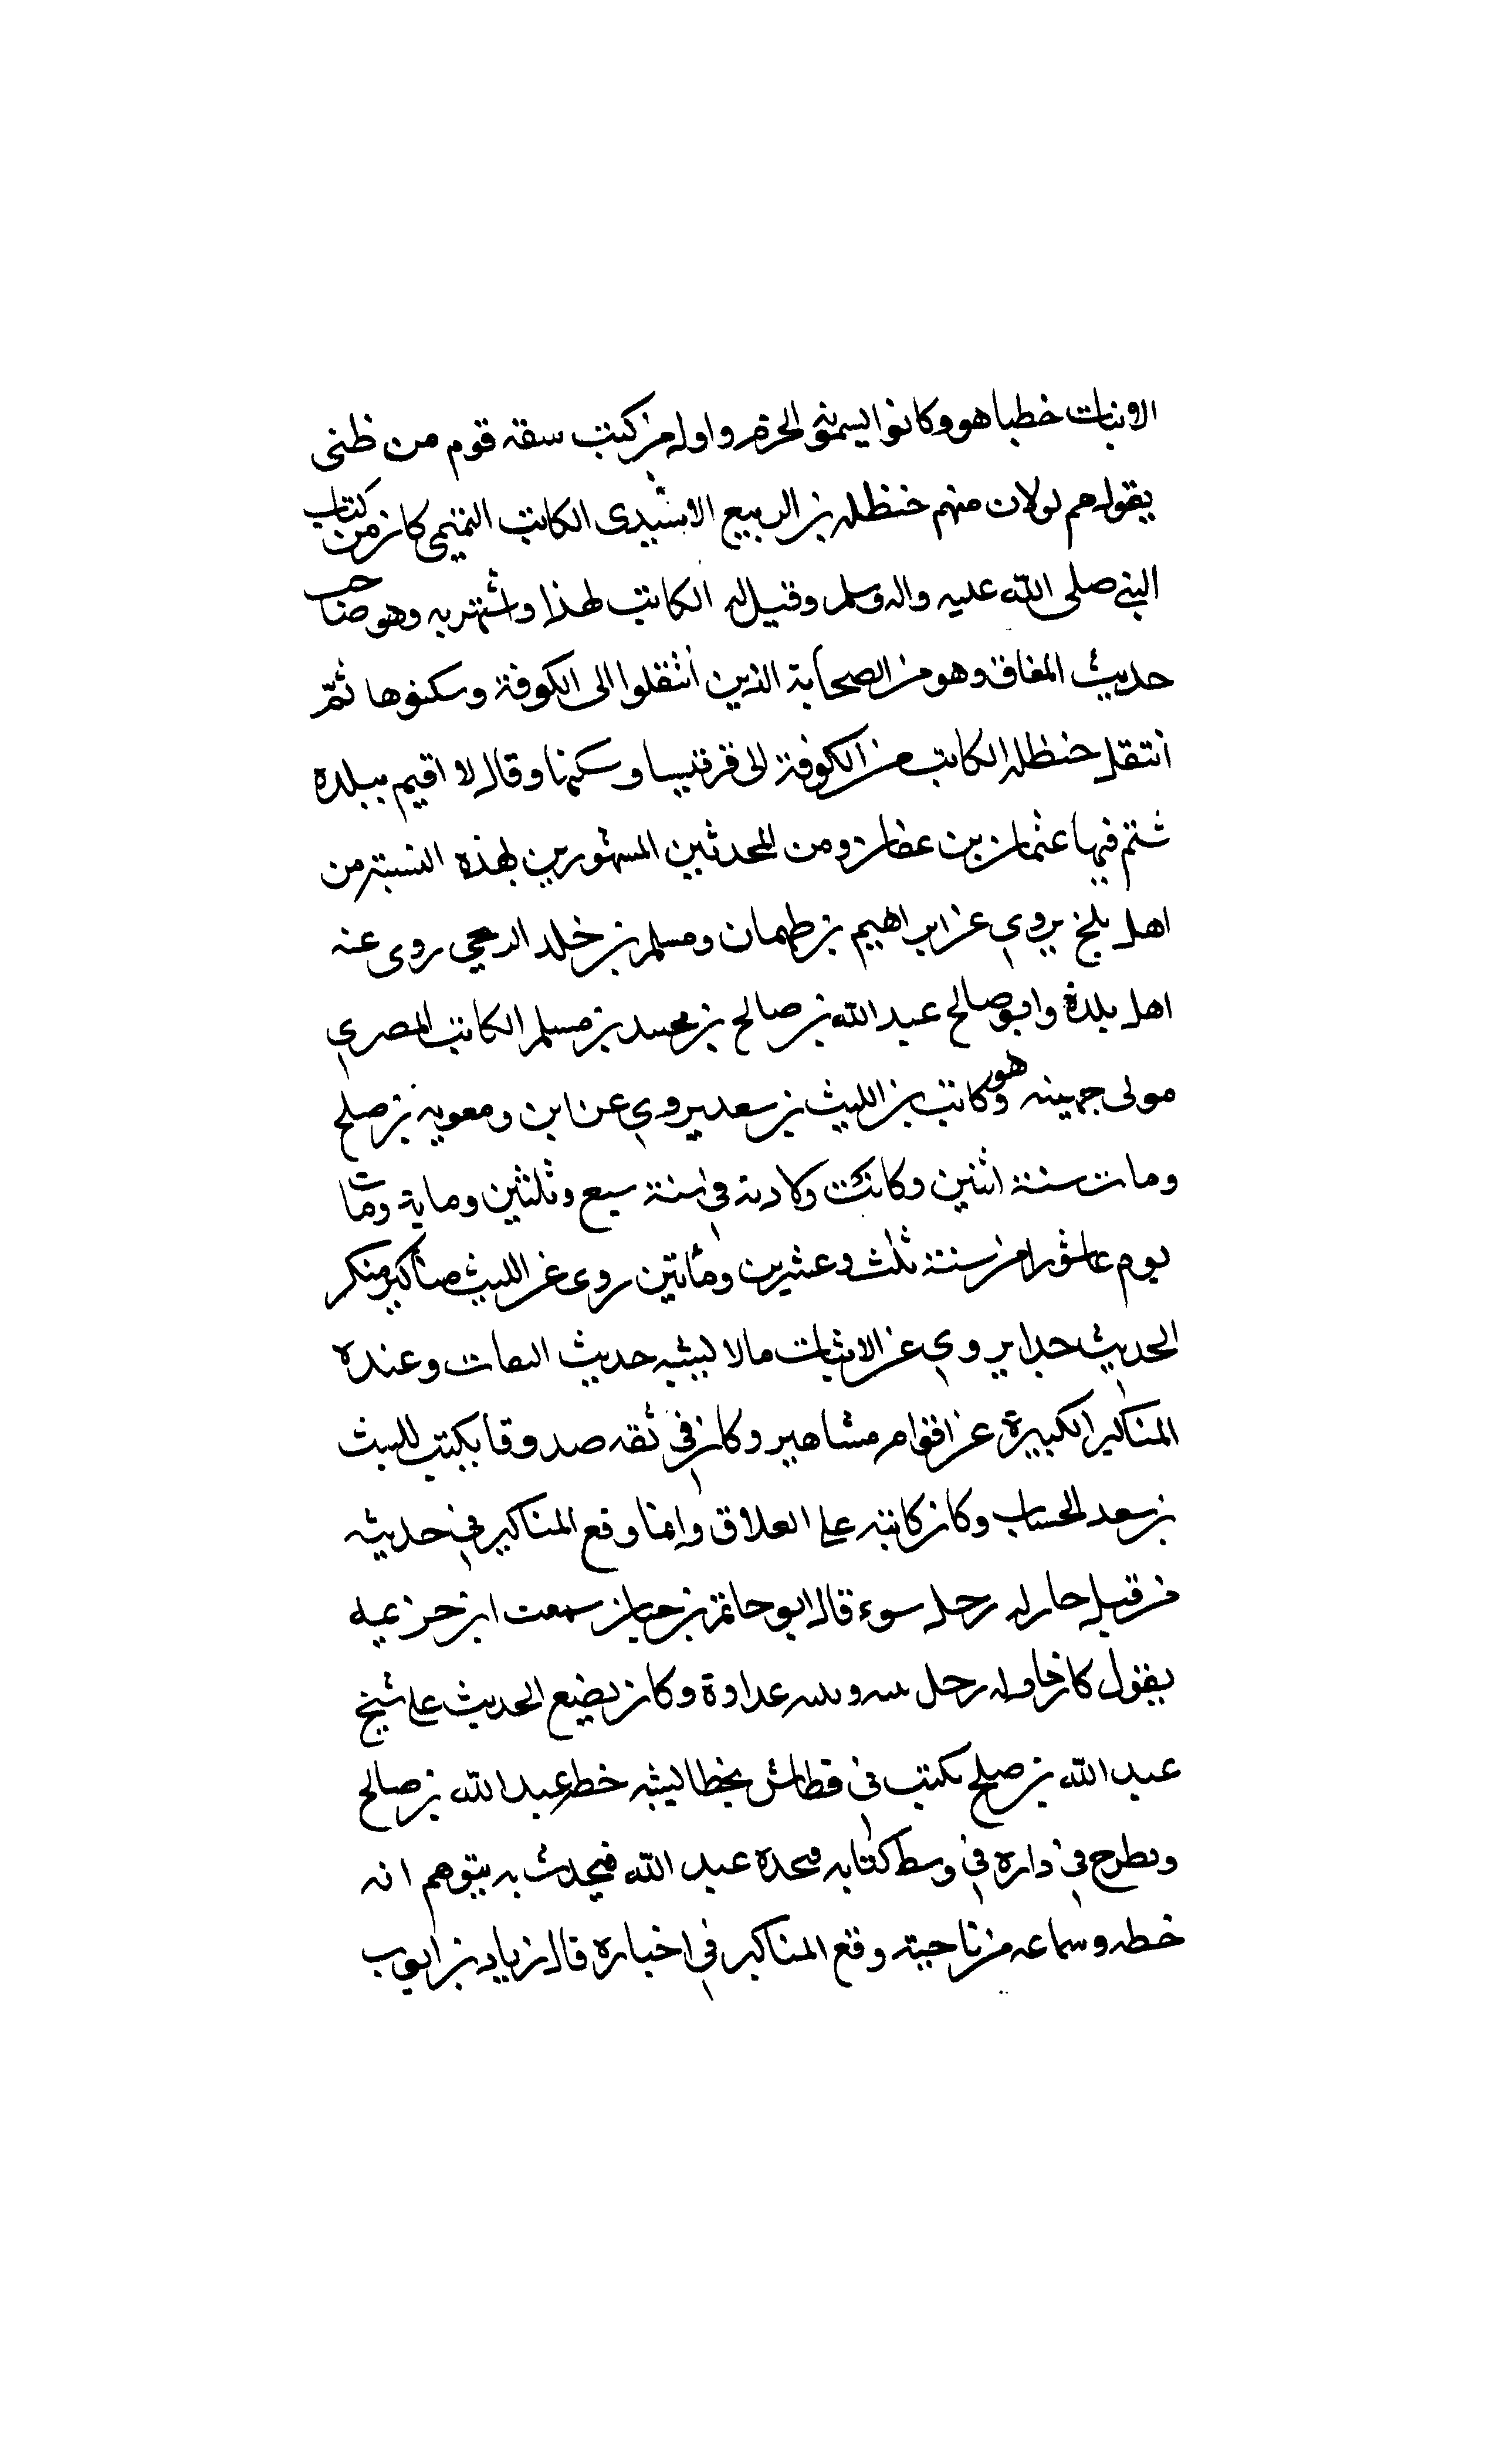 الانبات خطبا هو وكانوا يسمون الحزم واول من كتب سقه قوم من طى
يقول هم لولان منهم حنظله بن الربيع الاسيدى الكاتب التميمى كان من كتاب
النبي صلى الله عليه واله وسلم وقيل له الكاتب لهذا واشتهر به وهو صاحب
حديث النفاق وهو من الصحابة الذين انتقلوا الى الكوفة وسكنوها ثم
انتقل حنظله الكاتب من الكوفة الى قرقيسا وسكنها وقال لا اقيم ببلده
شتم فيها عثمان بن عفان ومن المحدثين المشهورين بهذه النسبة من
اهل بلخ يروي عن ابراهيم بن طهمان ومسلم بن خلد الزنجي روى عنه
اهل بلدة وابو صالح عبد الله بن صالح بن محمد بن مسلم الكاتب المصري
مولى جهينه وهو كاتب بن الليث بن سعد يروي عن ابن ومعويه بن صلح
ومات سنة اثنين وكانت ولادته في سنة سبع وثلثين وماية ومات
يوم عاشورا من سنة ثلث وعشرين ومائتين روى عن الليث مناكير منكر
الحديث جدا يروي عن الاثبات مالا يشبه حديث الثقات وعنده
المناكير الكبيرة عن اقوام مشاهير وكان في ثقه صدوقا يكتب لليث
بن سعد الحساب وكان كاتبه على العلاق وانما وقع المناكير في حديثه
من قبل جار له رجل سوء قال ابو حاتم بن حبان سمعت ابن خزيمه
يقول كان جاوله رجل بينه وبينه عداوة وكان يضع الحديث على شيخ
عبد الله بن صلح يكتب في قطاس بخط يشبه خط عبد الله بن صالح
ويطرح في داره في وسط كتابه فيجده عبد الله فيحدث به يتوهم انه
خطه وسماعه من ناحيته وقع المناكير في اخباره قال زياد بن ايوب